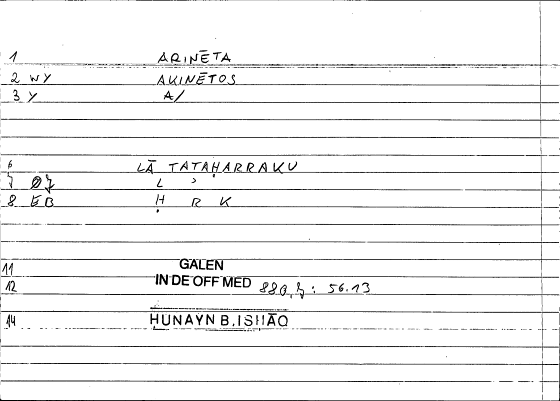 1 ARINĒTA
2 WY AKINĒTOS
3 Y A/
6 LĀ TATAḤARRAKU
7 L ʾ
8 EB Ḥ R K
11 GALEN
12 IN DE OFF MED 56.13
14 HUNAYN B. ISḤĀQ